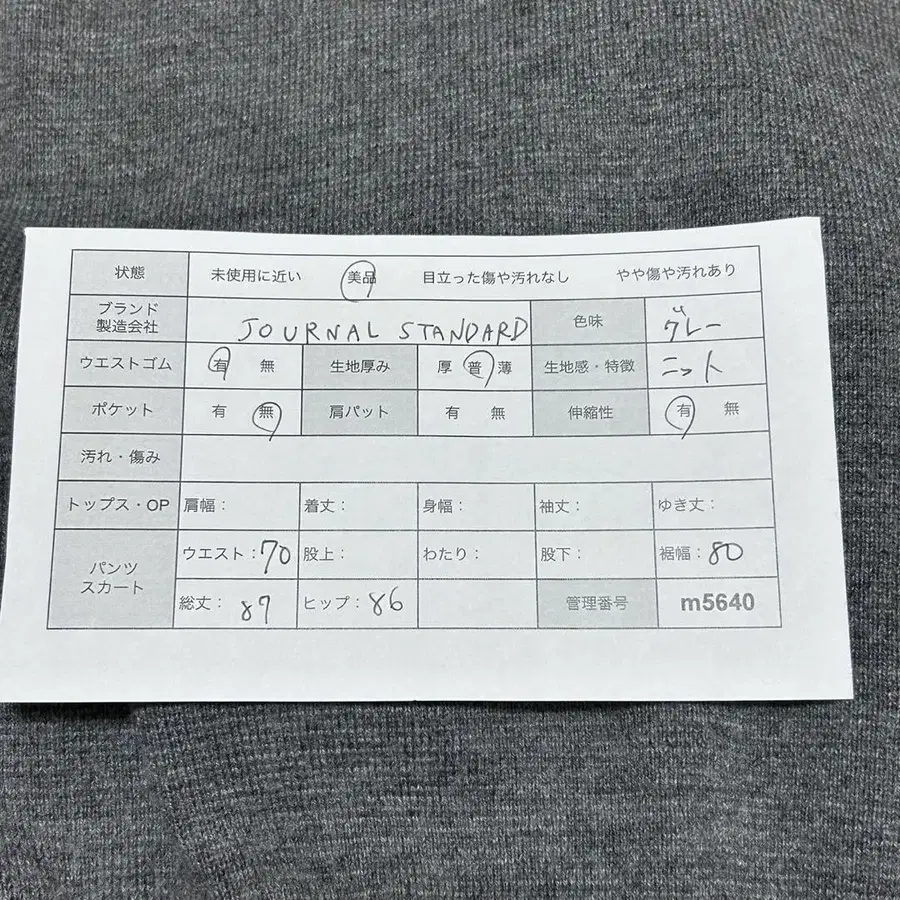 状態 未使用に近い 美品 目立った傷や汚れなし やや傷や汚れあり
ブランド
製造会社 JOURNAL STANDARD 色味 グレー
ウエストゴム 有 無 生地厚み 厚 普 薄 生地感・特徴 ニット
ポケット 有 無 肩パット 有 無 伸縮性 有 無
汚れ・傷み
トップス・OP 肩幅: 着丈: 身幅: 袖丈: ゆき丈:
パンツ
スカート
ウエスト:70 股上: わたり: 股下: 裾幅:80
総丈:87 ヒップ:86 管理番号 m5640